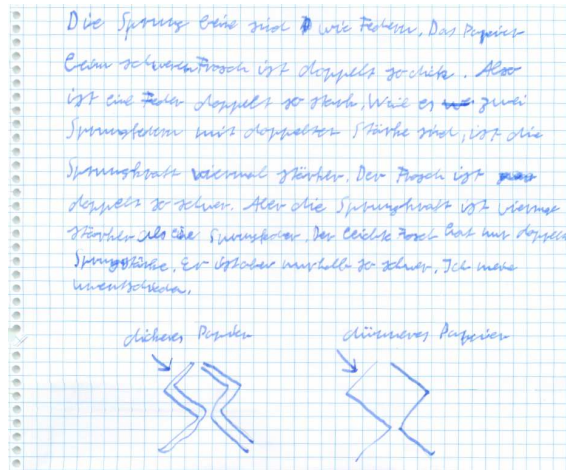 Die Sprung beine sind wie Federn. Das Papier
beim schweren Frosch ist doppelt so dick. Also
ist eine Feder doppelt so stark. Weil es zwei
Sprungfedern mit doppelter Stärke sind, ist die
Sprungkraft viermal stärker. Der Frosch ist
doppelt so schwer. Aber die Sprungkraft ist viermal
stärker als eine Sprungfeder. Der leichte Frosch hat nur doppelte
Sprungstärke. Er ist aber nur halb so schwer. Ich meine
unentschieden.
dickeres Papier
dünneres Papier